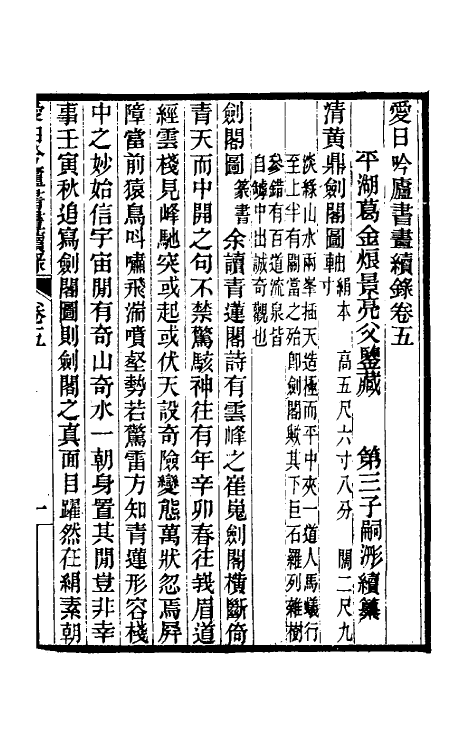 愛日吟廬書畫續錄卷五
平湖葛金烺景亮父鑒藏　第三子嗣浵續纂
清黃鼎劍閣圖軸絹本　高五尺六寸八分　闊二尺九寸
淡綠山水兩峯插天造極而平中夾一道人馬蟻行
至上半有關當之殆卽劍閣歟其下巨石羅列雜樹
參錯有百道流泉皆
自罅中出誠奇觀也
劍閣圖篆書余讀青蓮閣詩有雲峰之崔嵬劍閣橫斷倚
青天而中開之句不禁驚駭神往有年辛卯春往義眉道
經雲棧見峰馳突或起或伏天設奇險變態萬狀忽焉屛
障當前猿鳥呌嘯飛湍噴壑勢若驚雷方知青蓮形容棧
中之妙始信宇宙閒有奇山奇水一朝身置其閒豈非幸
事壬寅秋追寫劍閣圖則劍閣之真面目躍然在絹素朝
愛日吟廬書畫續錄　卷五　一